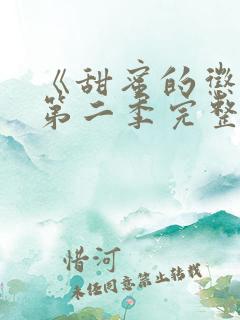 《甜蜜的惩
第二季完整
惜河
未经同意禁止转载